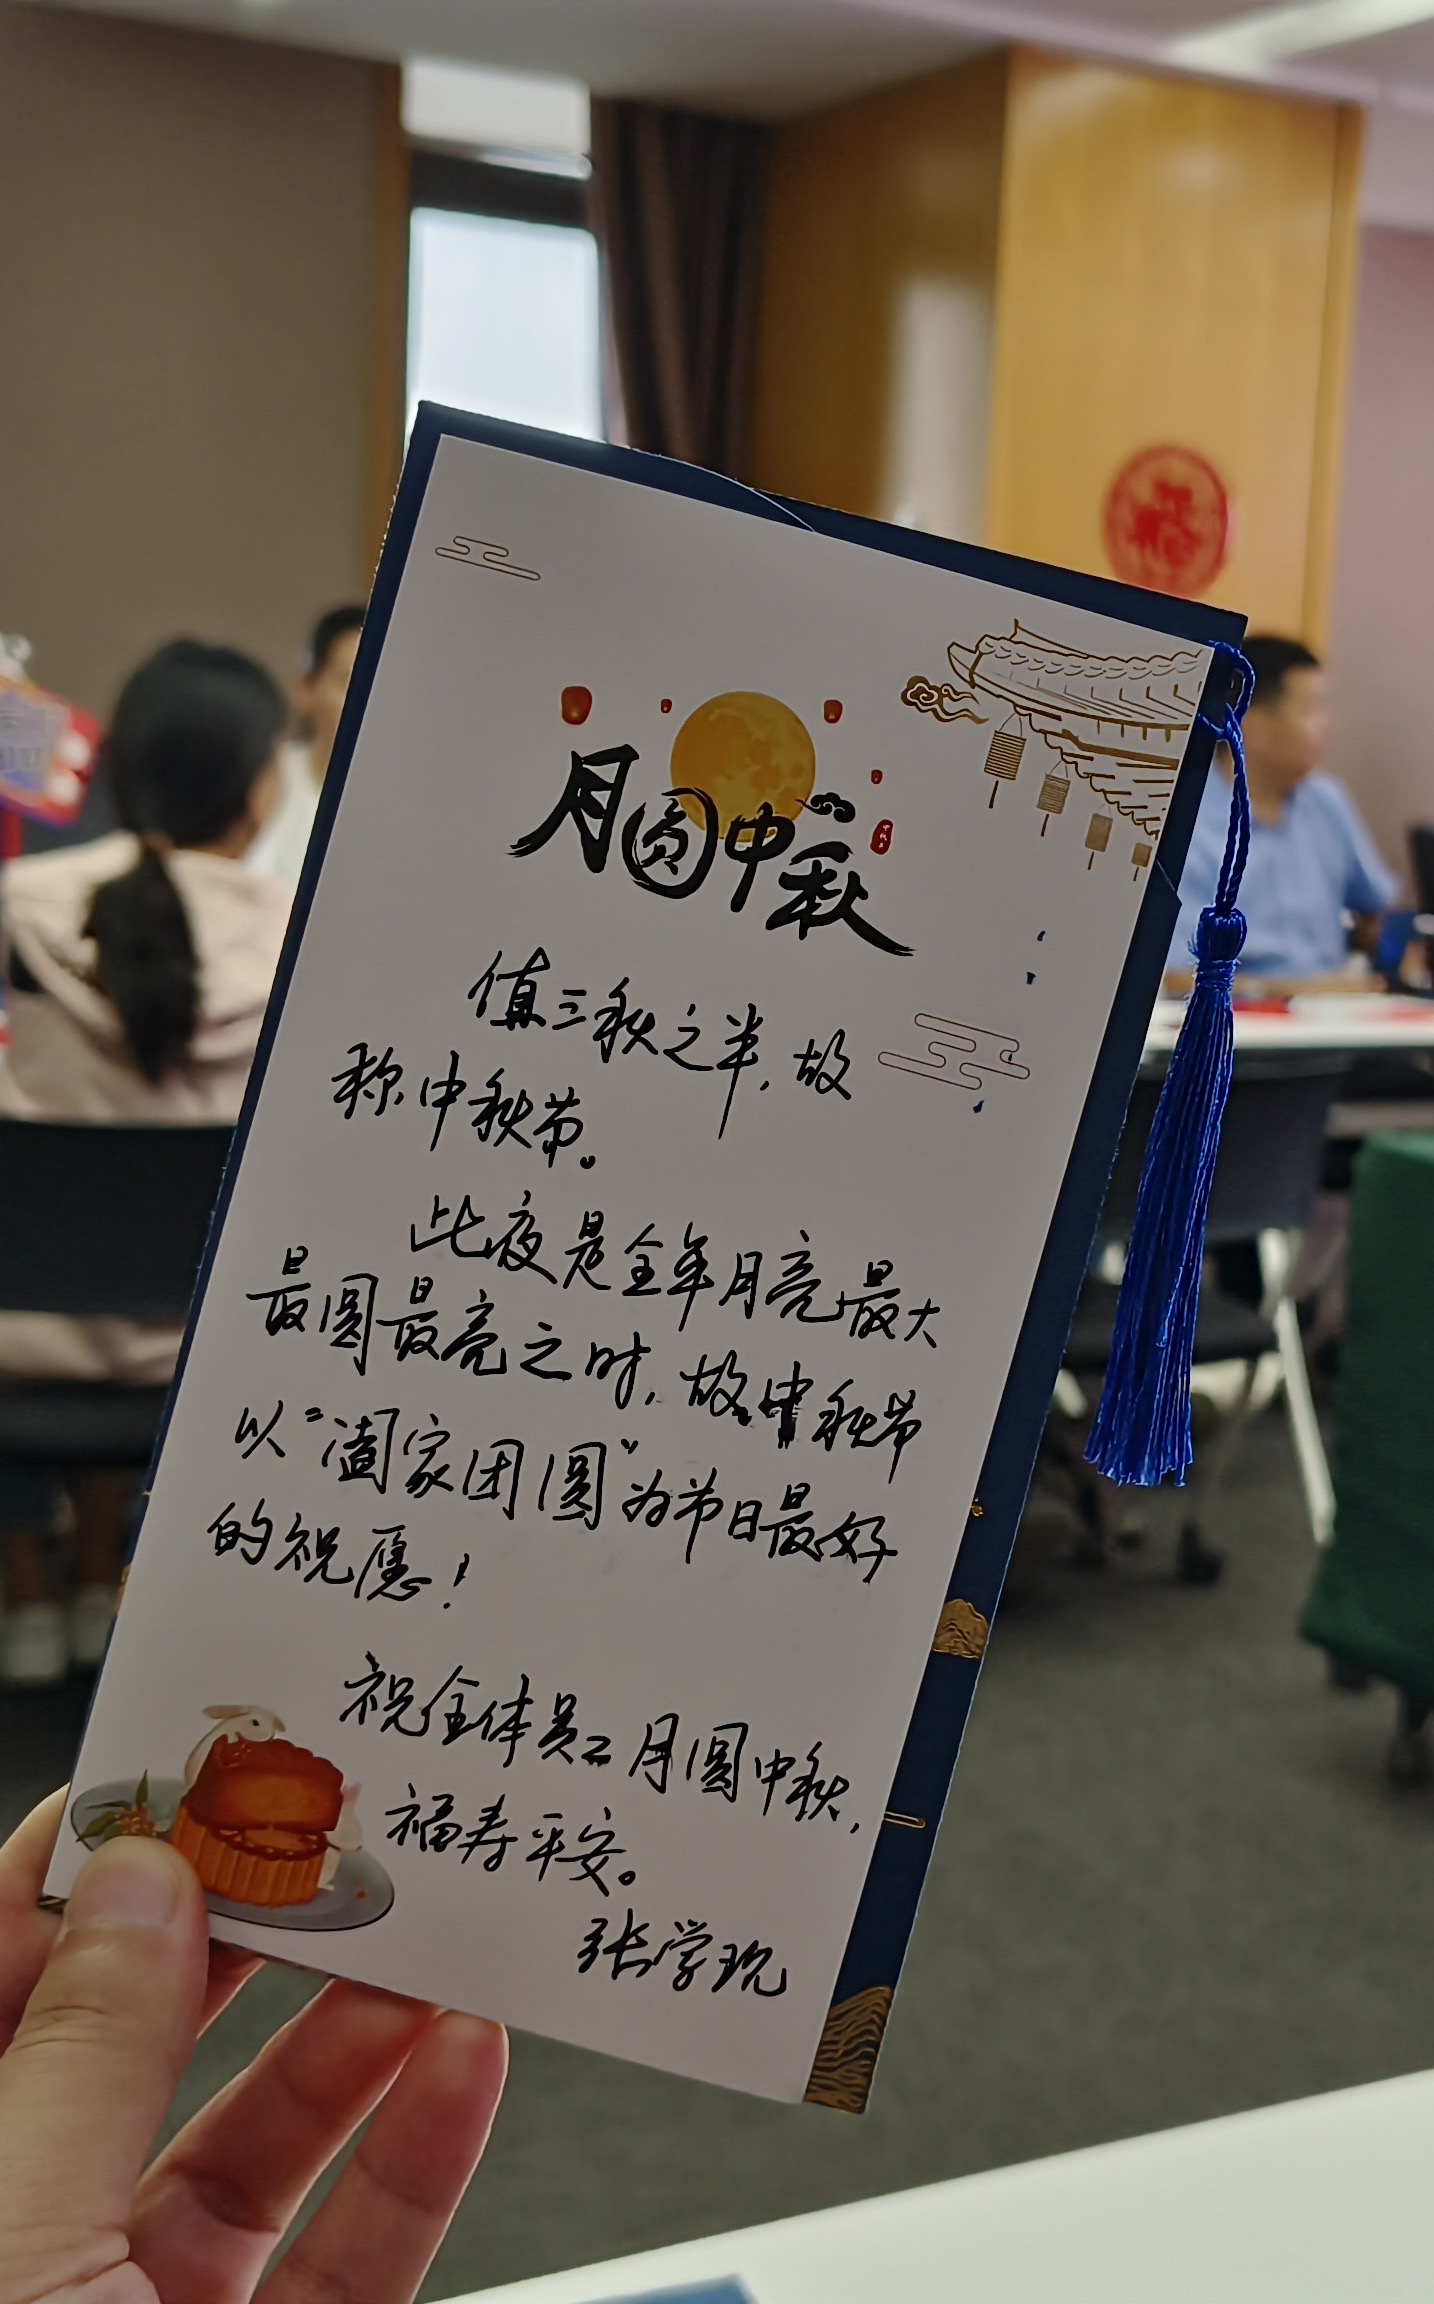 月圆中秋
值三秋之半，故
称中秋节。
此夜是全年月亮最大
最圆最亮之时，故中秋节
以“阖家团圆”为节日最好
的祝愿！
祝全体员工月圆中秋，
福寿平安。
张学